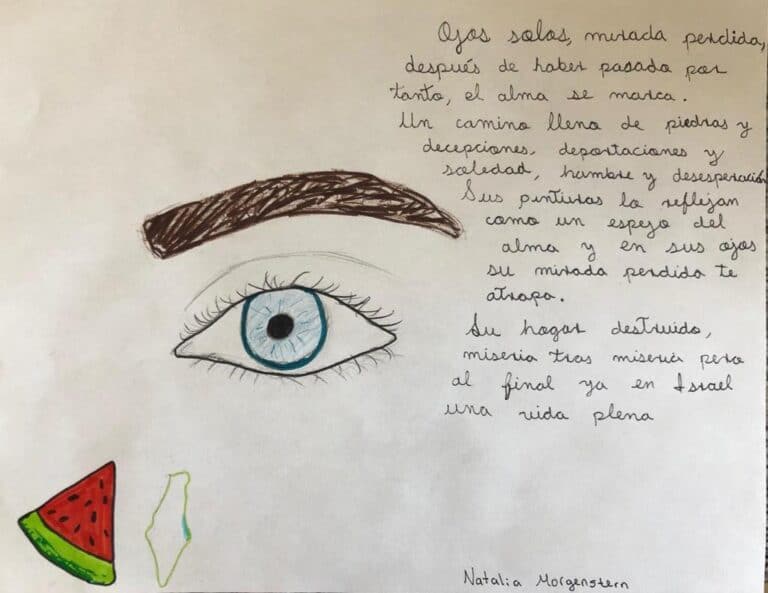 Ojos solos, mirada perdida,
después de haber pasado por
tanto, el alma se marca.
Un camino lleno de piedras y
decepciones, deportaciones y
soledad, hambre y desesperación
Sus pinturas lo reflejan
como un espejo del
alma y en sus ojos
su mirada perdida te
atrapa.
Su hogar destruido,
miseria tras miseria pero
al final ya en Israel
una vida plena
Natalia Morgenstern